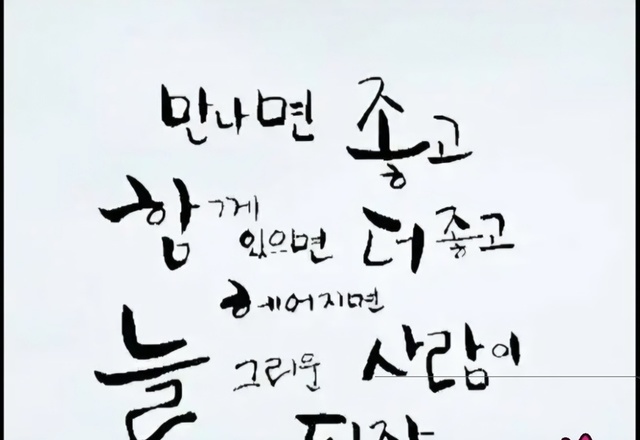 만나면 좋고
함께 있으면 더 좋고
헤어지면
늘 그리운 사람이